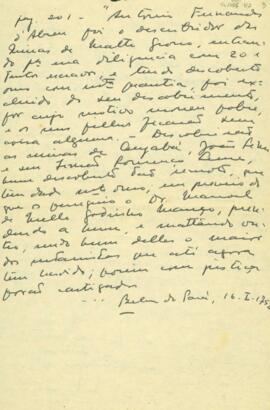 pag. 201 - "Antonio Fernandes
d'Abreu foi o descobridor das
Minas de Matto Grosso, entran-
do pª uma diligencia com 20 e
tantos escravos, e tendo descoberto
ouro com mtª grandeza, foi
do seu descobrimento,
por cujo motivo morreu pobre,
e os seus filhos ficarão sem
coisa alguma - Descobrirão
as minas de Cuyabá, João Leme
e seu Irmão Lourenço Leme,
huma descoberta tão remota, que
tem dado mto ouro, em premio do
que o perseguio o Dr. Manoel
de Mello Godinho Manço, pren-
dendo a hum, e mattando ou-
tro, sendo hum delles o maior
dos sertanistas que até agora
tem havido; porem com justiça
forão castigados
... Belem do Pará, 16. I - 175